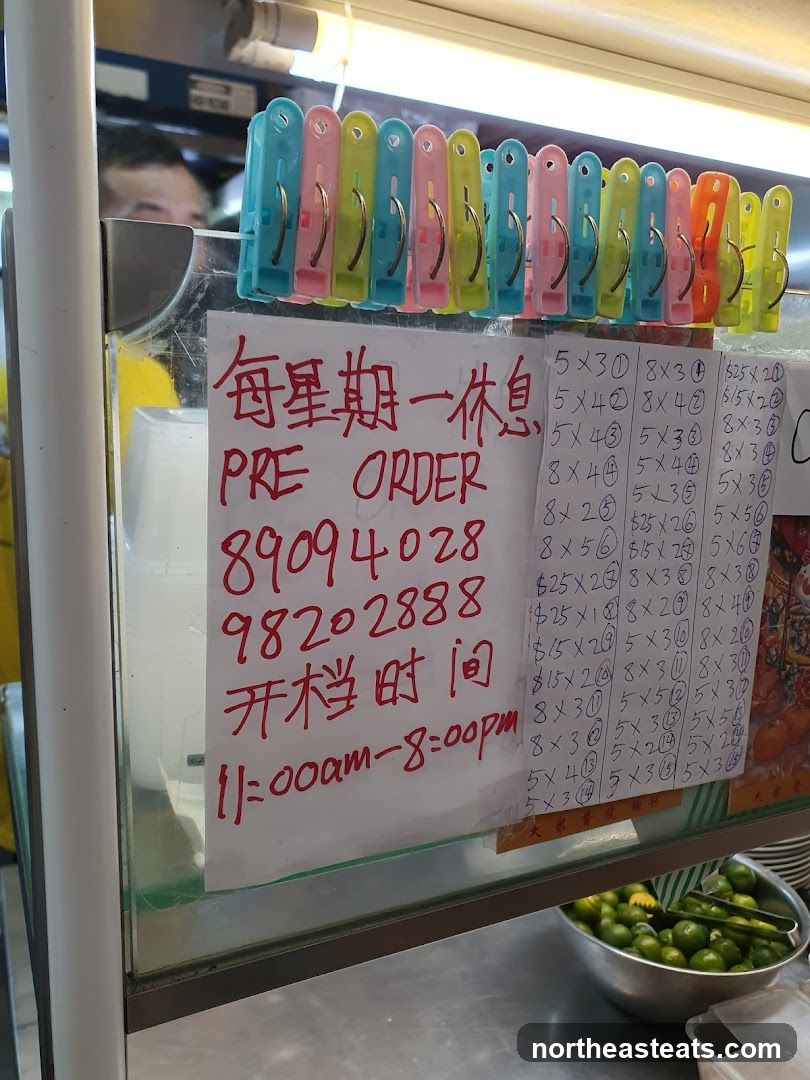 每星期一休息
PRE ORDER
89094028
98202888
开档时间
11:00am-8:00pm
5×3①
5×4②
5×4③
8×4④
8×2⑤
8×5⑥
$25×2⑦
$25×1⑧
$15×2⑨
$15×2⑩
8×3⑪
8×3⑫
5×4⑬
5×3⑭
8×3①
8×4②
5×3③
5×4④
5×3⑤
$25×2⑥
$15×2⑦
8×3⑧
8×2⑨
5×3⑩
8×3⑪
5×5⑫
5×3⑬
5×2⑭
5×3⑮
$25×2①
$15×2②
8×3③
8×3④
5×3⑤
5×5⑥
5×6⑦
8×3⑧
8×4⑨
8×2⑩
8×3⑪
5×3⑫
5×5⑬
5×2⑭
5×3⑮
northeasteats.com